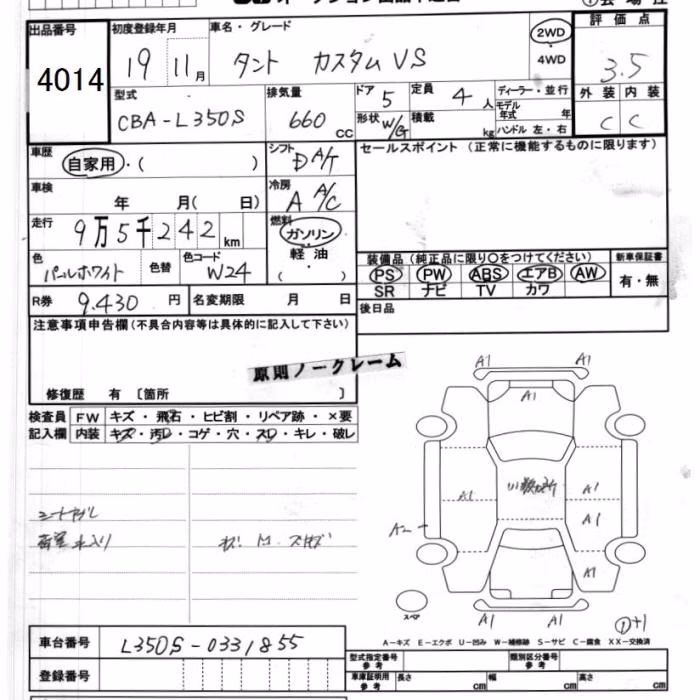 出品番号 初度登録年月 車名・グレード 評価点
4014 19 11月 タント カスタム VS 2WD 3.5
4WD
型式 排気量 ドア 5 定員 4人 ディーラー・並行 外装 内装
CBA-L350S 660 CC 形状 W/G 積載 kg モデル年式 年 C C
ハンドル 左・右
車歴 自家用・( ) シフト D A/T セールスポイント(正常に機能するものに限ります)
車検 年 月( 日) 冷房 A A/C
走行 9万5千242km 燃料 ガソリン
軽油
( )
色 パールホワイト 色替 色コード W24
装備品(純正品に限り○をつけてください) 新車保証書
PS PW ABS エアB AW 有・無
SR ナビ TV カワ
R券 9.430円 名変期限 月 日 後日品
注意事項申告欄(不具合内容等は具体的に記入して下さい)
原則ノークレーム
修復歴 有 [箇所 ]
検査員 FW キズ・飛石・ヒビ割・リペア跡・×要
記入欄 内装 キズ・汚レ・コゲ・穴・スレ・キレ・破レ
A1 A1
A1
A1 A1
A1
A2
A1
A1 A1
スペア
①+1
A-キズ E-エクボ U-凹み W-補修跡 S-サビ C-腐食 XX-交換済
車台番号 L350S-0331855
登録番号
型式指定番号 参考 類別区分番号 参考
車庫証明用 参考 長さ cm 幅 cm 高さ cm